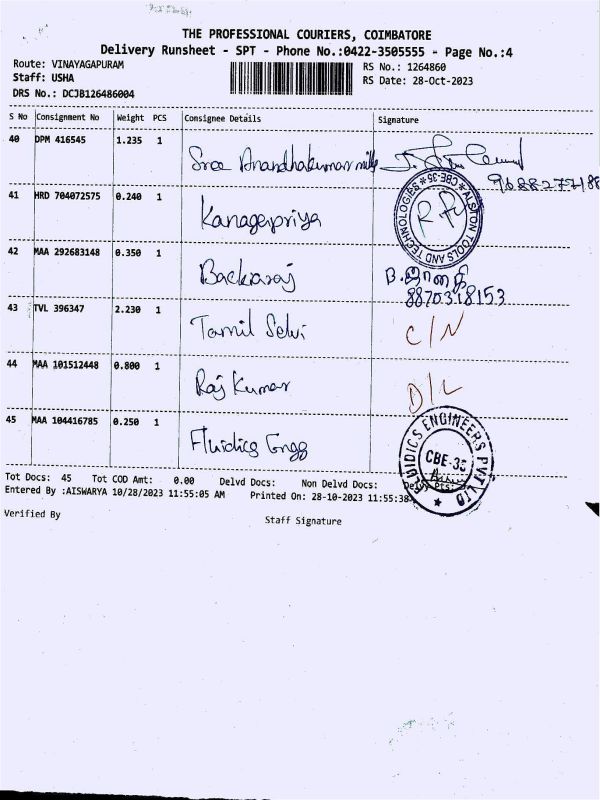 THE PROFESSIONAL COURIERS, COIMBATORE
Delivery Runsheet - SPT - Phone No.:0422-3505555 - Page No.:4
Route: VINAYAGAPURAM RS No.: 1264860
Staff: USHA RS Date: 28-Oct-2023
DRS No.: DCJB126486004
S No Consignment No Weight PCS Consignee Details Signature
40 DPM 416545 1.235 1 Sree Anandhakumar mills
9688277188
41 HRD 704072575 0.240 1 Kanagapriya
ALSTON TOOLS AND TECHNOLOGIES * CBE-35 *
42 MAA 292683148 0.350 1 Backiaraj B.ஜானகி
8870318153
43 TVL 396347 2.230 1 Tamil Selvi C/N
44 MAA 101512448 0.800 1 Raj Kumar D/L
45 MAA 104416785 0.250 1 Fluidics Engg
FLUIDICS ENGINEERS PVT LTD
CBE-35
Tot Docs: 45 Tot COD Amt: 0.00 Delvd Docs: Non Delvd Docs: Delvy Pts:
Entered By :AISWARYA 10/28/2023 11:55:05 AM Printed On: 28-10-2023 11:55:38
Verified By Staff Signature